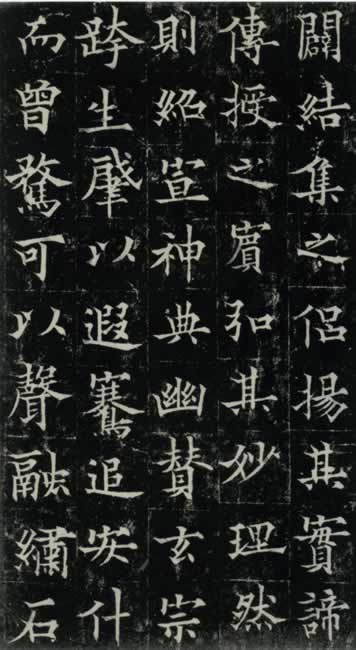 闢結集之侶揚其實諦
傳授之賓弘其妙理然
則紹宣神典幽賛玄宗
跨生肇以遐騫追安什
而曾騖可以聲融繡石